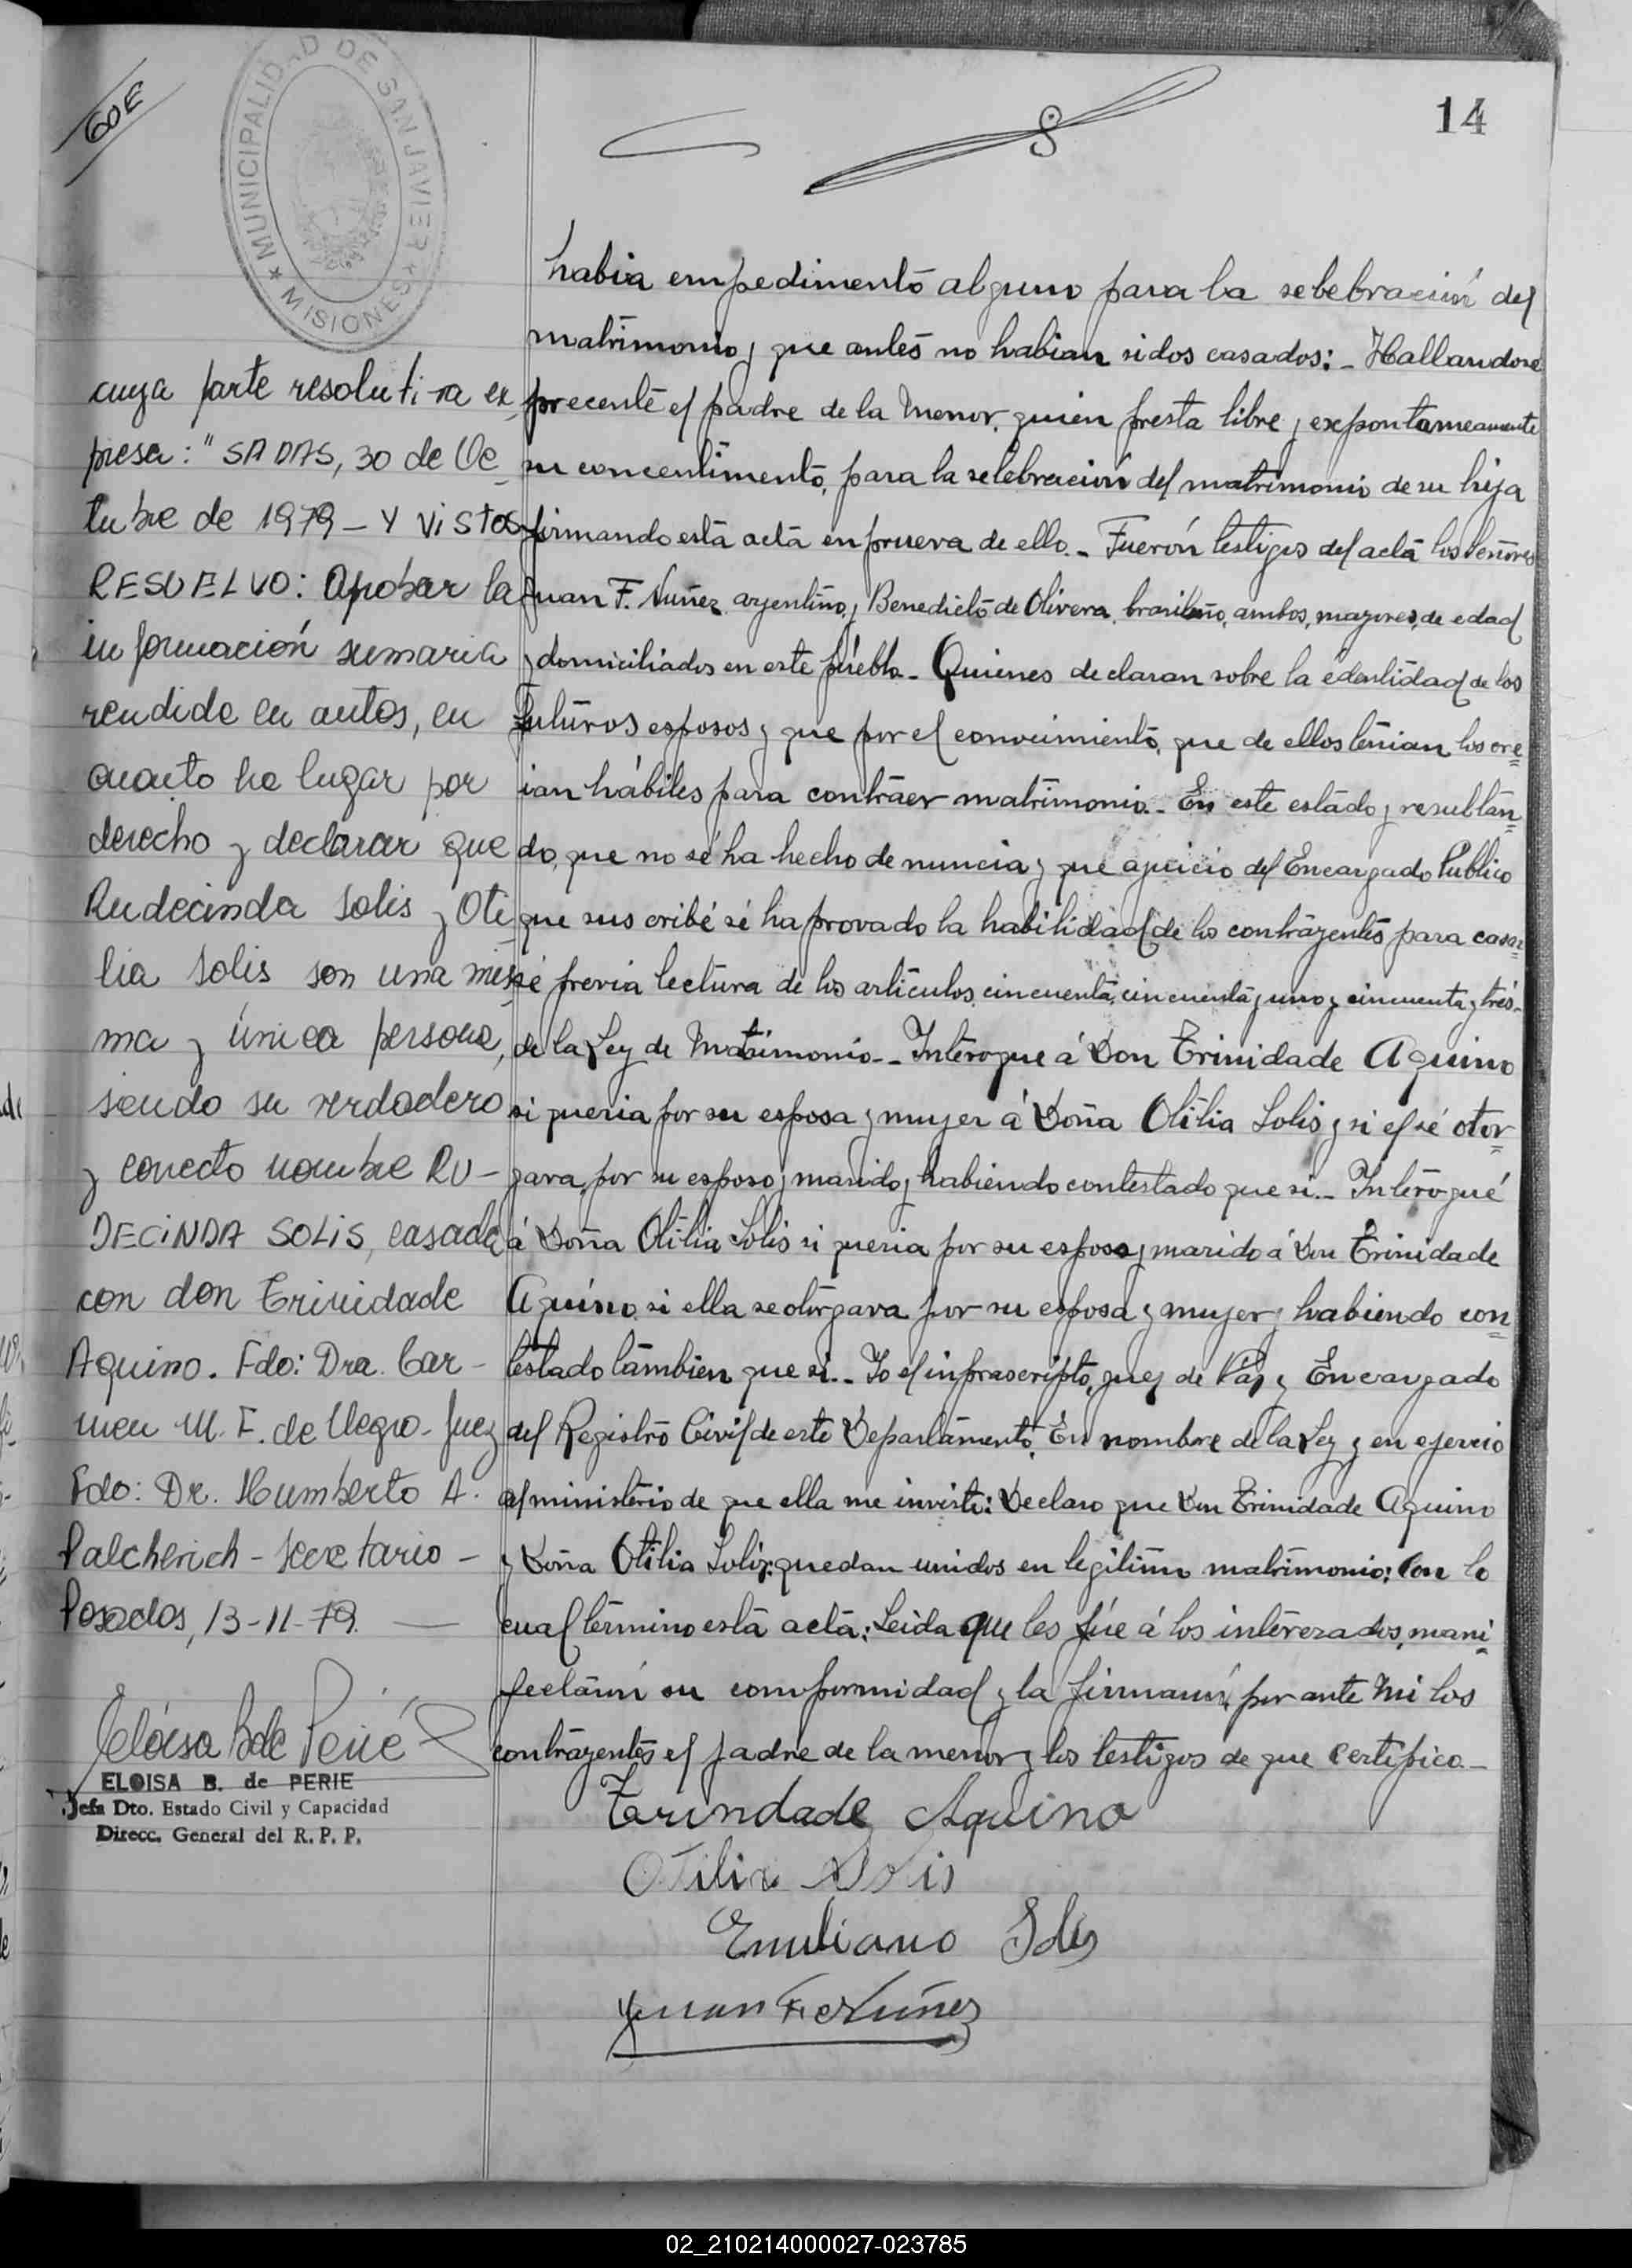 60E
MUNICIPALIDAD DE SAN JAVIER
★ MISIONES ★
14
cuya parte resolutiva ex
presa: "SADAS, 30 de Oc
tubre de 1979 - Y VISTOS
RESUELVO: Aprobar la
información sumaria
rendida en autos, en
cuanto ha lugar por
derecho y declarar que
Rudecinda Solis y Oti
lia Solis son una mis
ma y única persona,
siendo su verdadero
y correcto nombre RU-
DECINDA SOLIS, casada
con don Trinidade
Aquino. Fdo: Dra. Car-
men M. F. de Llegro - Juez
Fdo: Dr. Humberto A.
Palcherich - Secretario -
Posadas, 13-11-79. —
Eloisa B de Perié
ELOISA B. de PERIE
Jefa Dto. Estado Civil y Capacidad
Direcc. General del R. P. P.
habia empedimento alguno para la selebración del
matrimonio y que antes no habian sidos casados: - Hallandose
precente el padre de la menor, quien presta libre y expontameamente
su concentimento, para la selebración del matrimonio de su hija
firmando esta acta en prueva de ello. - Fuerón testigos del acta los señores
Juan F. Nuñez argentino, y Benedicto de Olivera, brasileño, ambos, mayores, de edad
y domiciliados en este puéblo - Quienes declaran sobre la edentidad de los
futuros esposos y que por el conocimiento, que de ellos tenian los cre
ian hábiles para contraer matrimonio. - En este estado y resultan
do, que no sé ha hecho denuncia y que ajuicio del Encargado Publico
que suscribé sé ha provado la habilidad de los contrayentes para casar
sé previa lectura de los articulos, cincuenta, cincuenta y uno y cincuenta y tres -
de la Ley de Matrimonio - - Interogue á Don Trinidade Aquino
si queria por su esposa y mujer á Doña Otilia Solis y si el sé otor
gava, por su esposo y marido y habiendo contestado que si. - Interogué
á Doña Otilia Solis si queria por su esposo y marido á Don Trinidade
Aquino, si ella se otorgava por su esposa y mujer y habiendo con
testado tambien que si. - Yo el infrascripto, juez de Páz y Encargado
del Registro Civil de este Departamento, En nombre de la Ley y en ejercio
al ministerio de que ella me inviste: Declaro que Don Trinidade Aquino
y Doña Otilia Solis: quedan unidos en legitimo matrimonio: Con lo
cual termino esta acta: Leida que les fúe á los interezados, mani
fectarón su comformidad y la firmarón por ante mi los
contrayentes el padre de la menor y los testigos de que certifico -
Tarindade Aquino
Otilia Solis
Emiliano Solis
Juan F. Nuñez
02_210214000027-023785